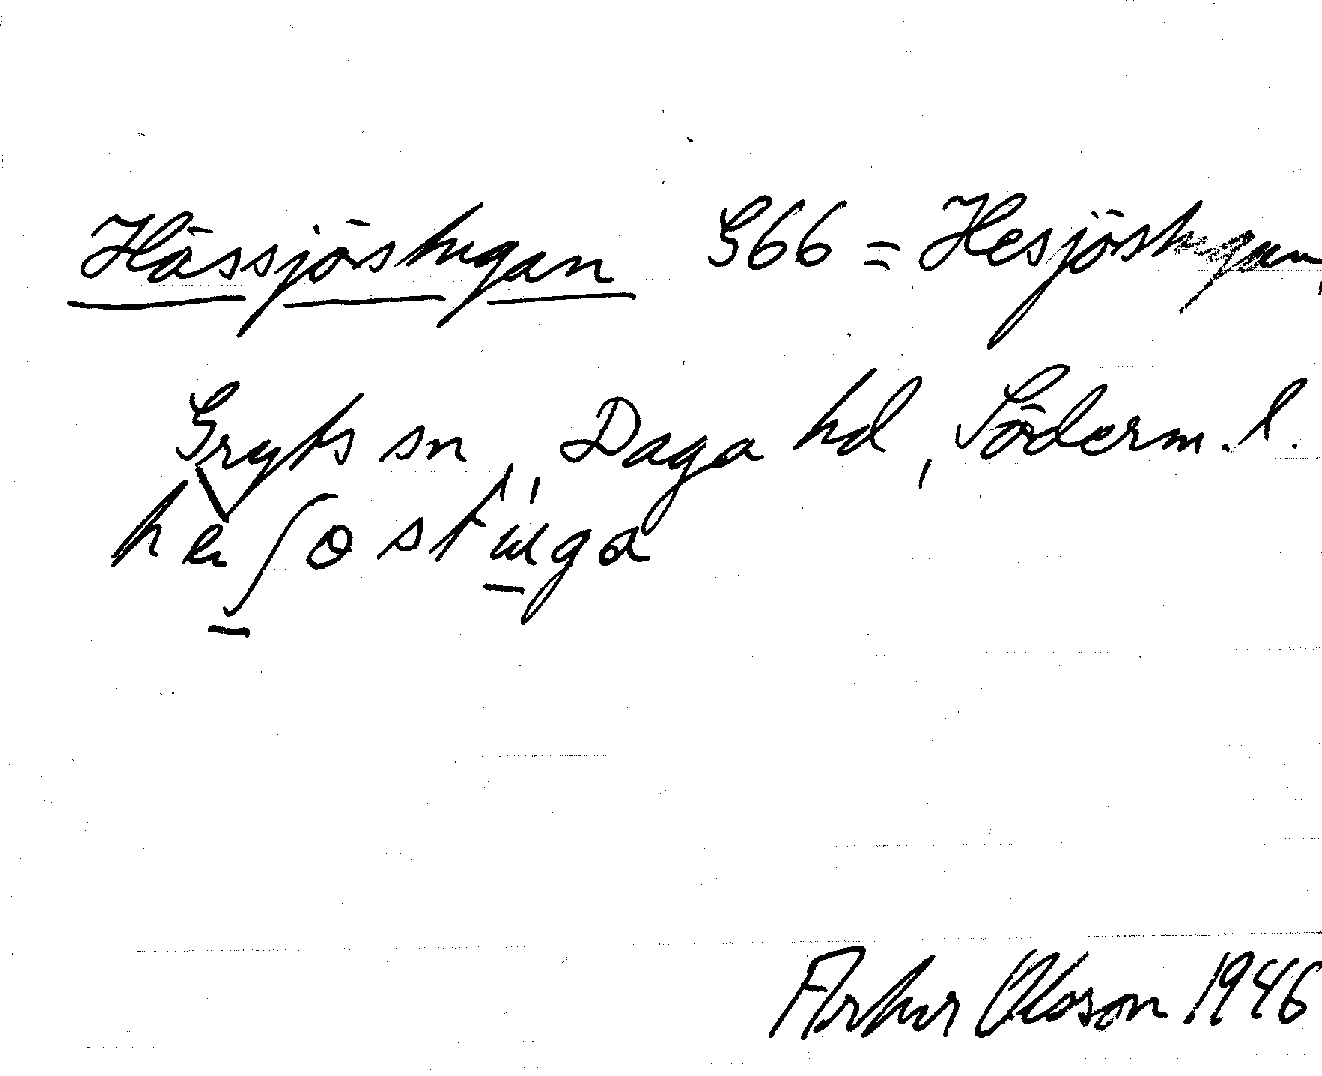 Hässjöstugan G66 = Hesjöstugan,
Gryts sn, Daga hd, Söderm. l.
Arthur Olsson 1946